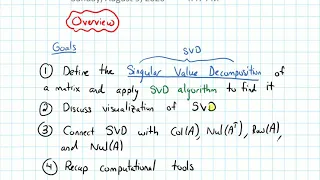 Overview
Goals
SVD
① Define the Singular Value Decomposition of
a matrix and apply SVD algorithm to find it
② Discuss visualization of SVD
③ Connect SVD with Col(A), Nul(Aᵀ), Row(A),
and Nul(A)
④ Recap computational tools